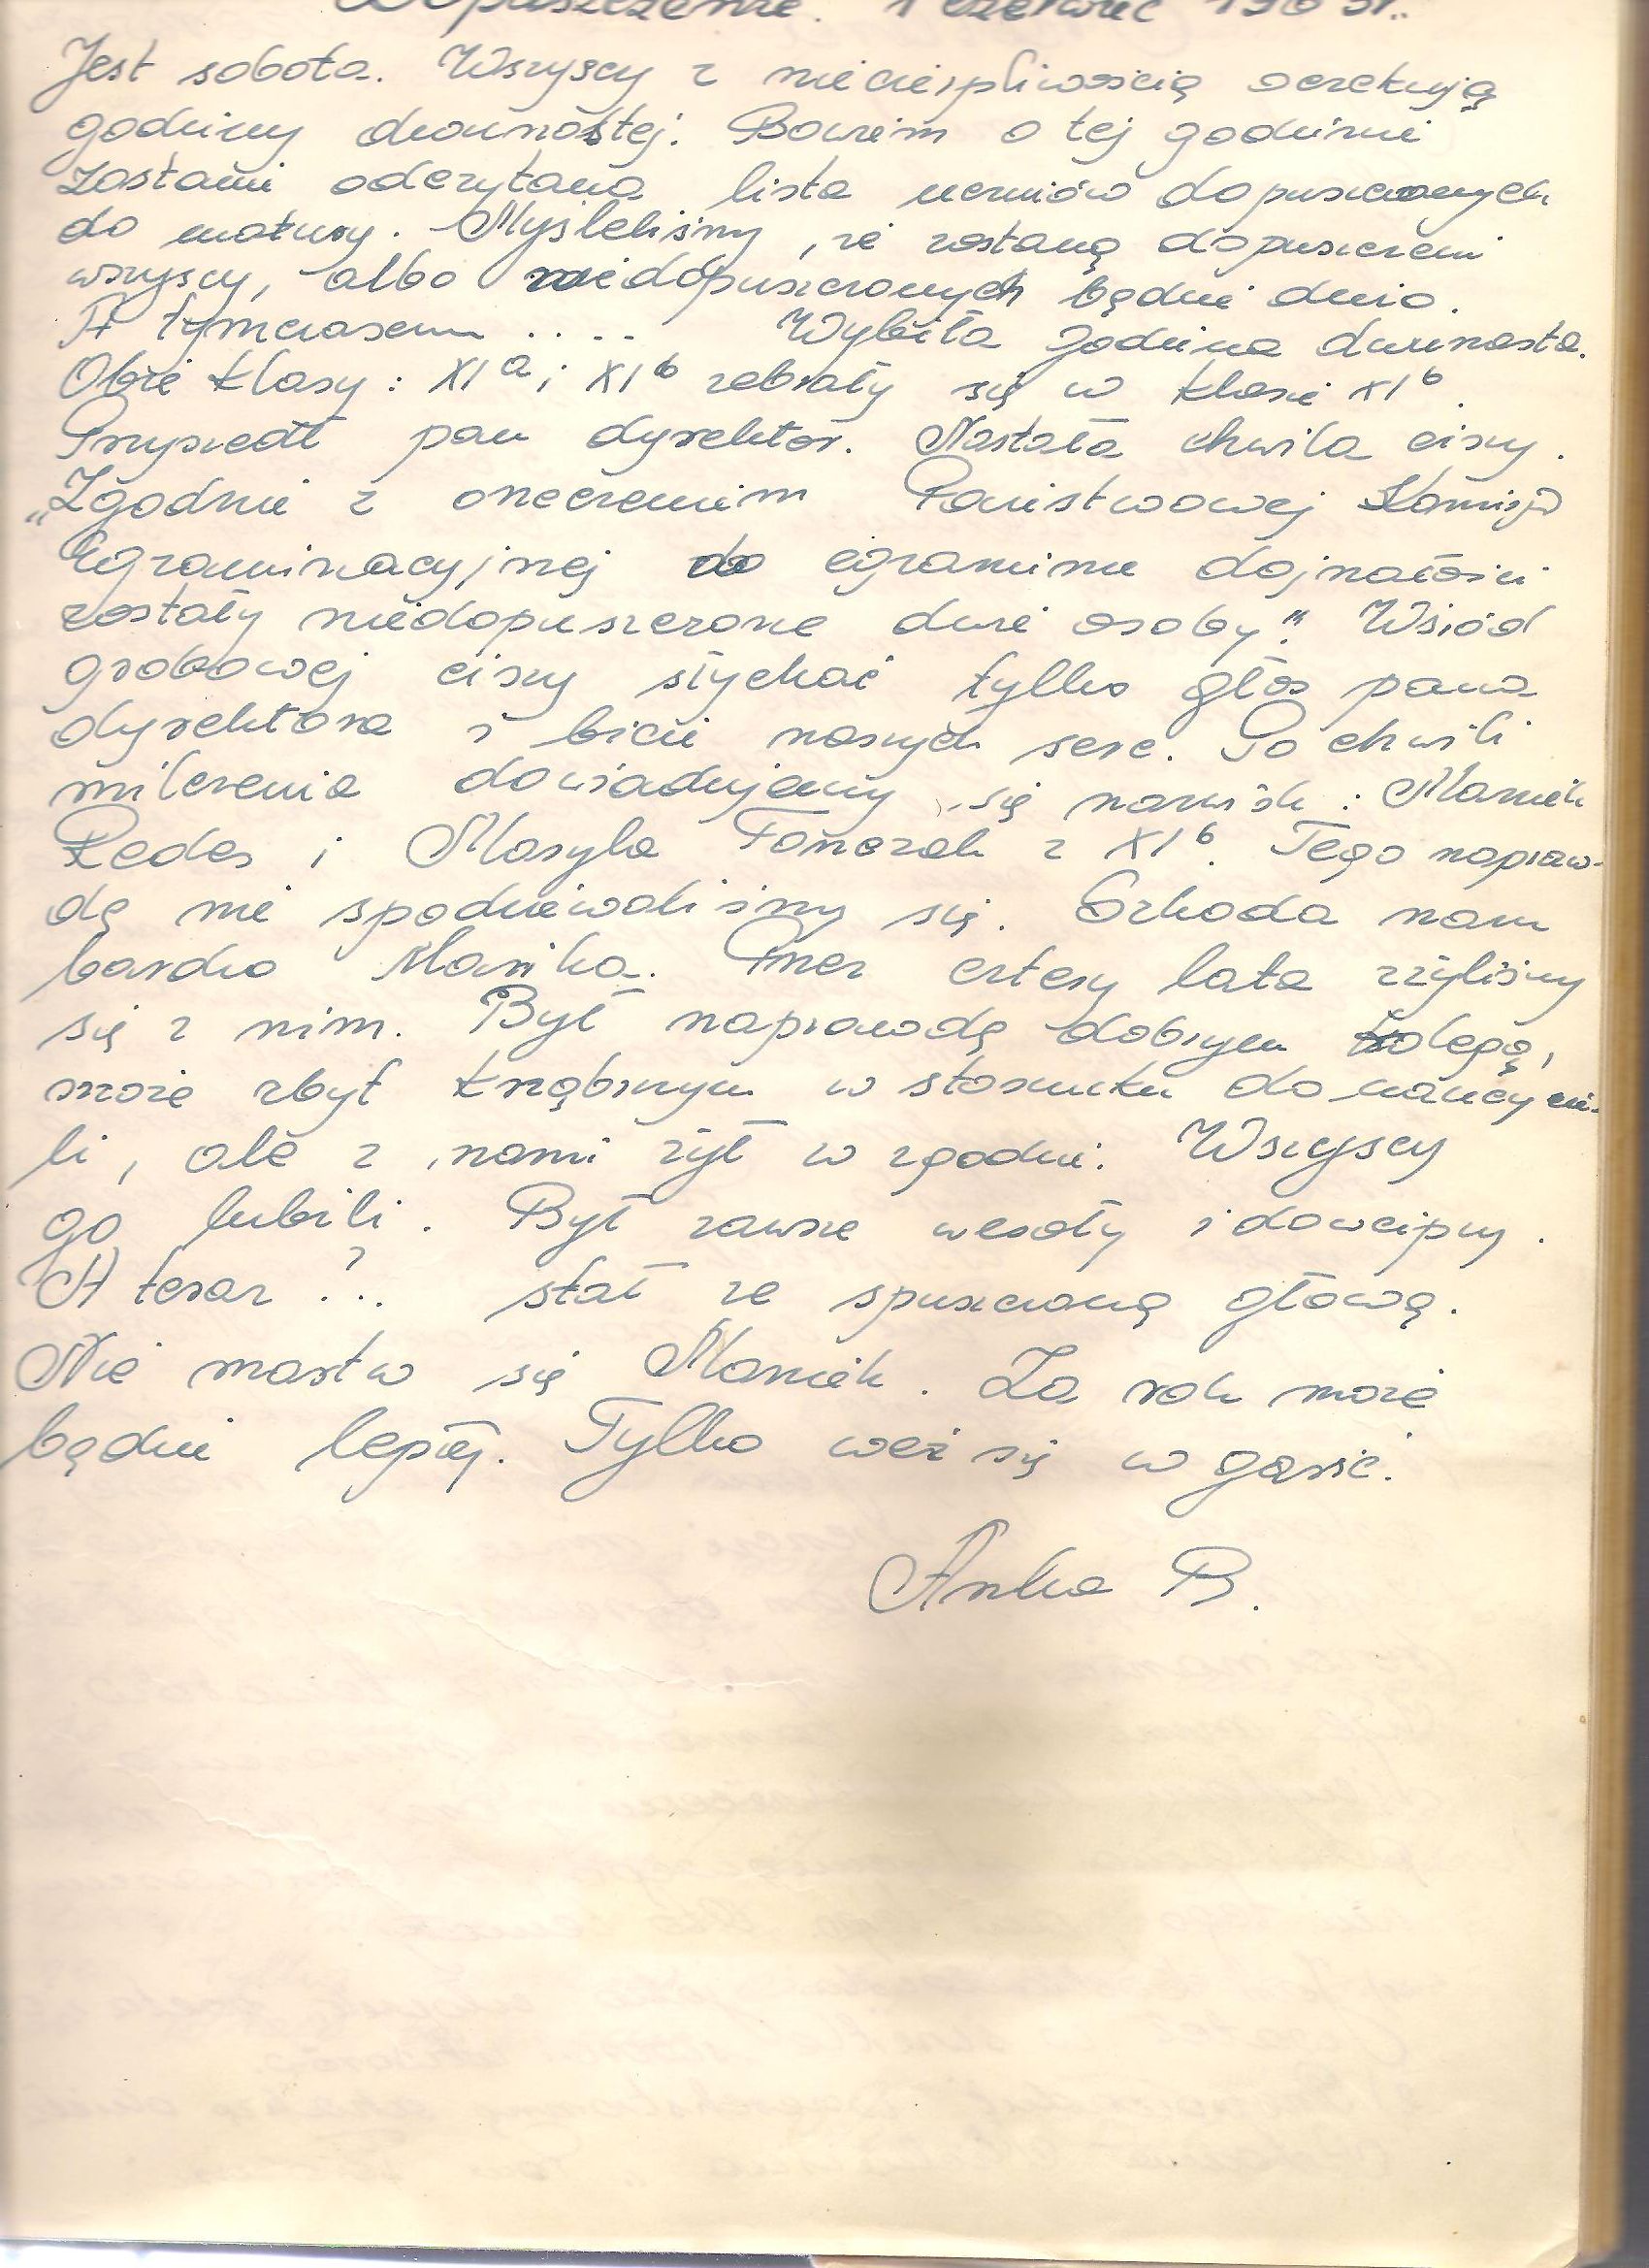 Dopuszczenie. 1 czerwiec 1963r.
Jest sobota. Wszyscy z niecierpliwością oczekują
godziny dwunastej. Bowiem o tej godzinie
zostanie odczytana lista uczniów dopuszczonych
do matury. Myśleliśmy, że zostaną dopuszczeni
wszyscy, albo niedopuszczonych będzie dużo.
A tymczasem .... Wybiła godzina dwunasta.
Obie klasy: XIa i XIb zebrały się w klasie XIb.
Przyszedł pan dyrektor. Nastała chwila ciszy.
„Zgodnie z orzeczeniem Państwowej Komisji
Egzaminacyjnej do egzaminu dojrzałości
zostały niedopuszczone dwie osoby." Wśród
grobowej ciszy słychać tylko głos pana
dyrektora i bicie naszych serc. Po chwili
milczenia dowiadujemy się nazwisk: Maniek
Redes i Maryla Tończak z XIb. Tego napraw-
dę nie spodziewaliśmy się. Szkoda nam
bardzo Mańka. Przez cztery lata zżyliśmy
się z nim. Był naprawdę dobrym kolegą,
może zbyt krnąbrnym w stosunku do nauczycie-
li, ale z nami żył w zgodzie. Wszyscy
go lubili. Był zawsze wesoły i dowcipny.
A teraz?.. stał ze spuszczoną głową.
Nie martw się Maniek. Za rok może
będzie lepiej. Tylko weź się w garść.
Anka B.